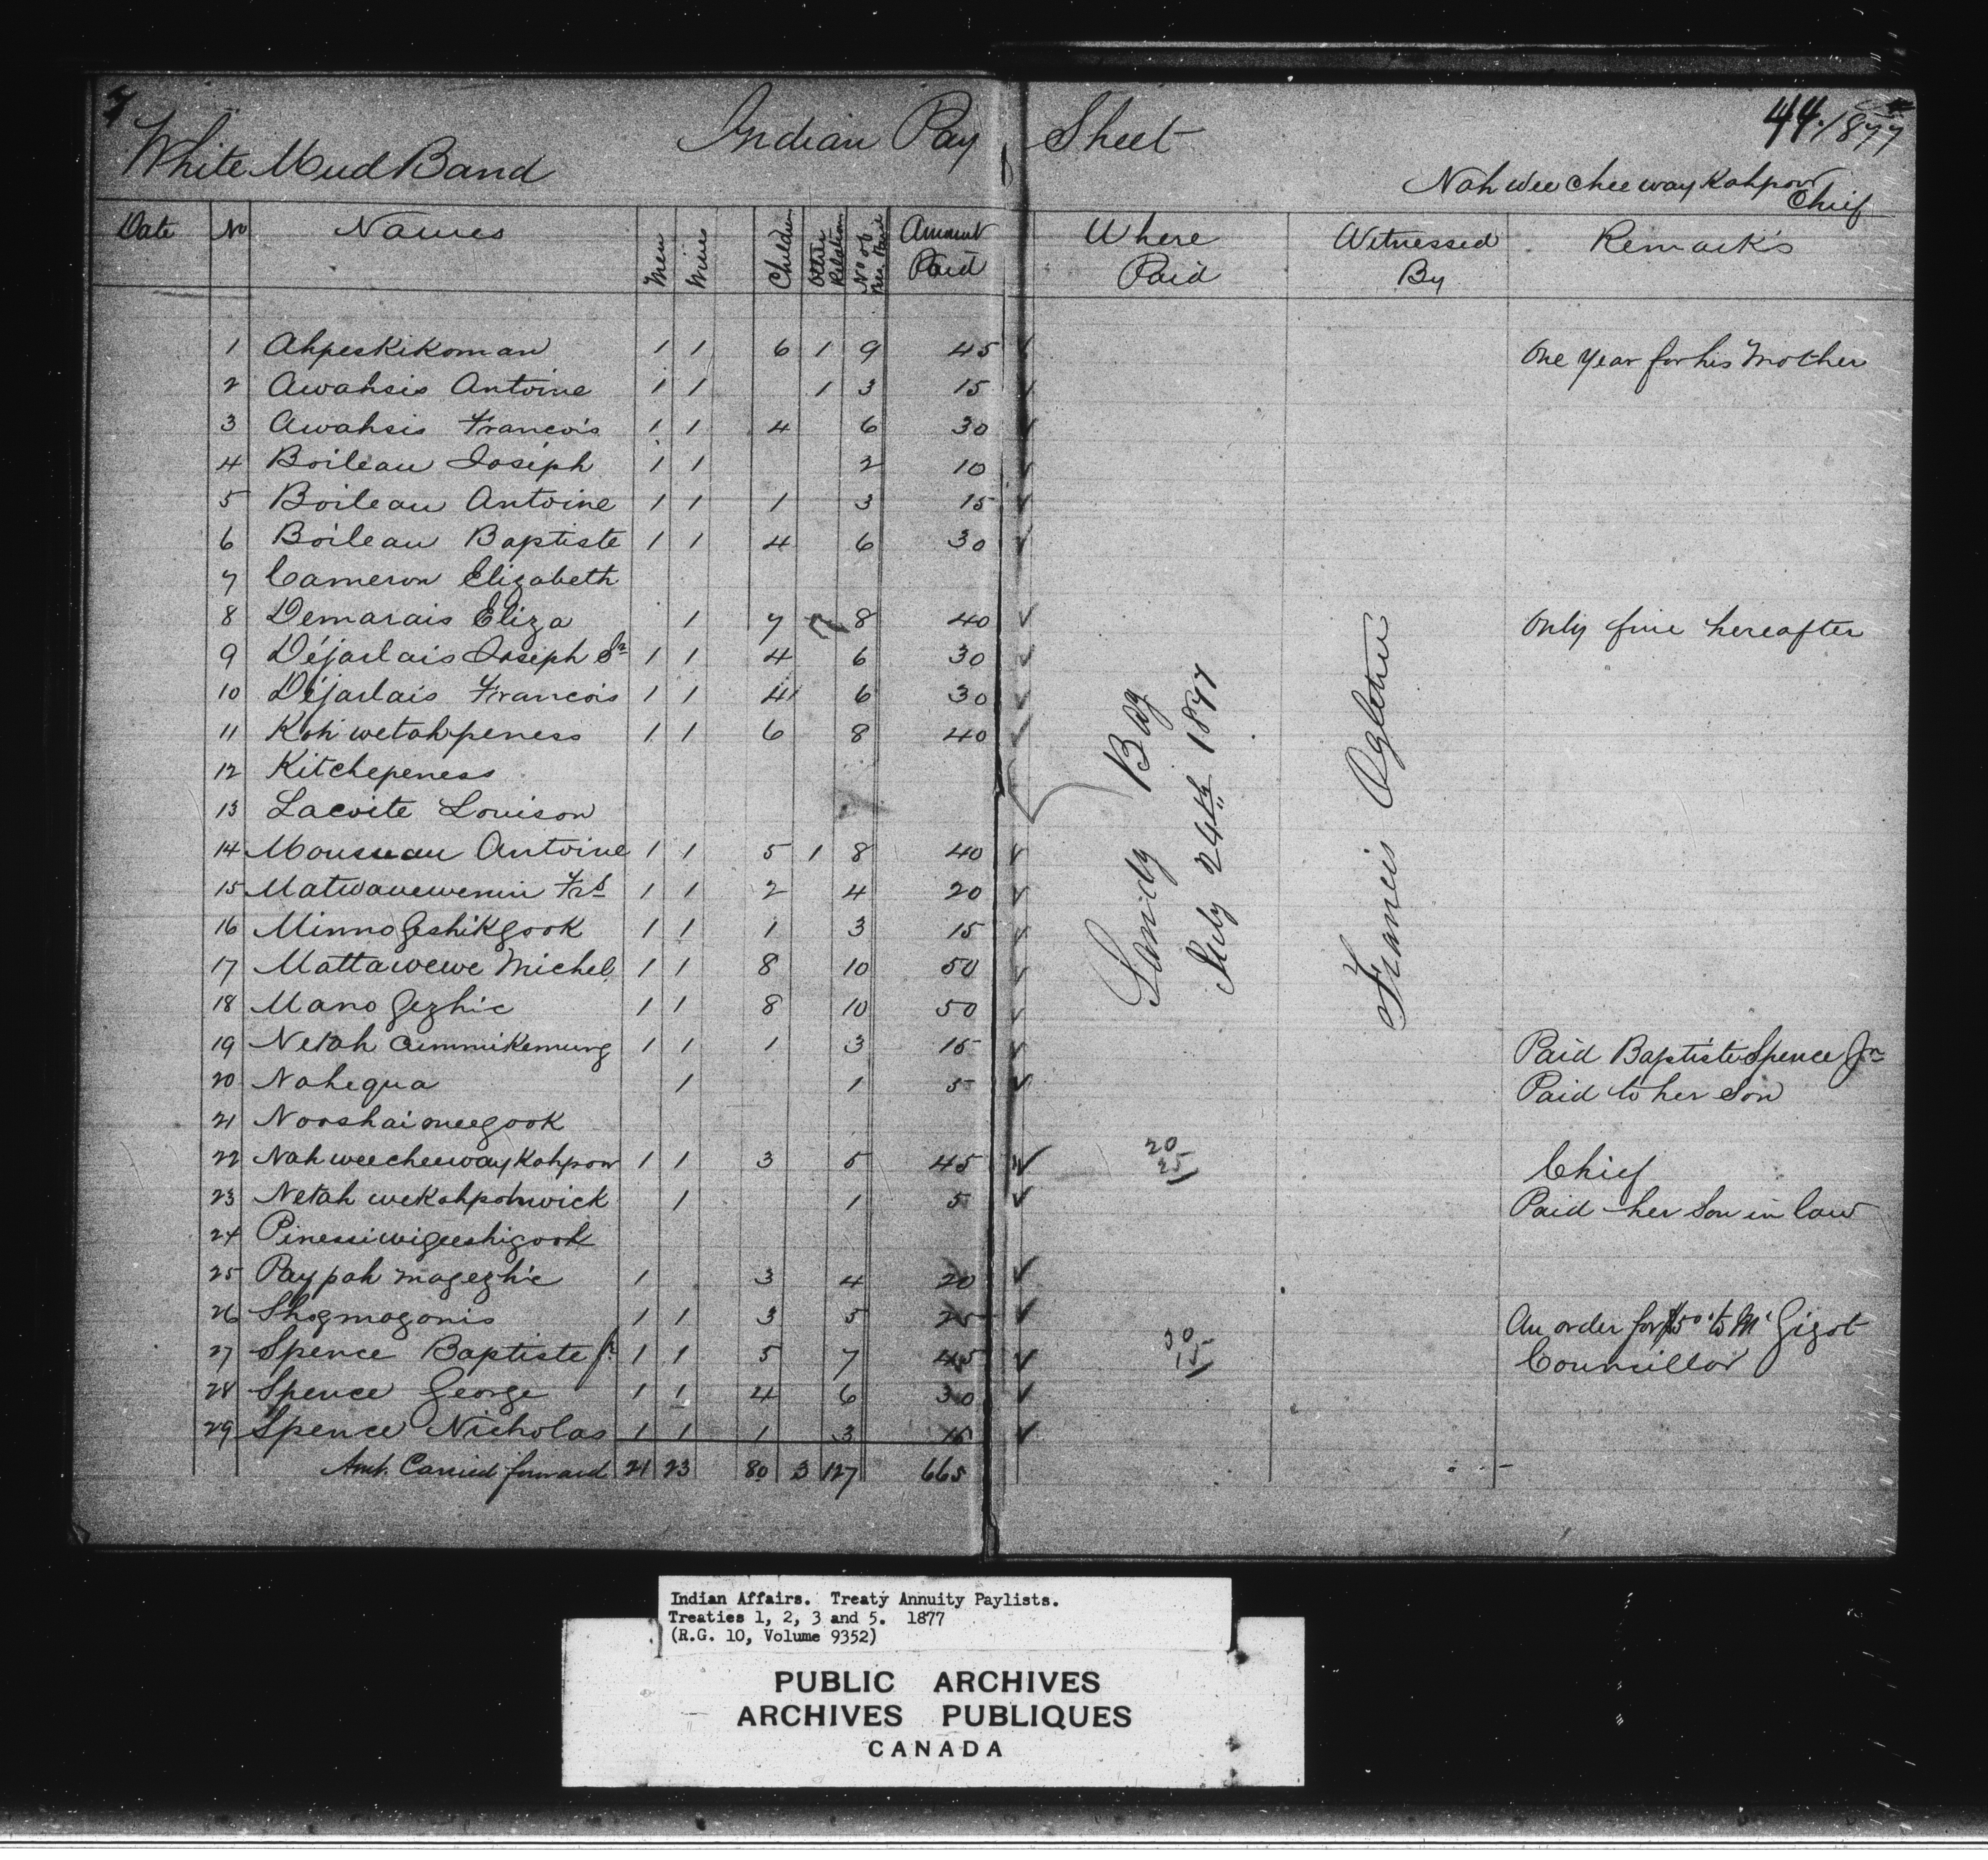 7 Indian Pay Sheet 44. 1877
White Mud Band Nah wee chee way Kahpow Chief
Date No Names Men Wives Children Other Relation No of Amount Paid Where Paid Witnessed By Remarks
1 Ahpeskikoman 1 1 6 1 9 45 One Year for his Mother
2 Awahsis Antoine 1 1 1 3 15
3 Awahsis Francois 1 1 4 6 30
4 Boileau Joseph 1 1 2 10
5 Boileau Antoine 1 1 1 3 15
6 Boileau Baptiste 1 1 4 6 30
7 Cameron Elizabeth
8 Demarais Eliza 1 7 8 40 Only five hereafter
9 Déjarlais Joseph Sr 1 1 4 6 30
10 Déjarlais Francois 1 1 4 6 30
11 Kah wetahpeness 1 1 6 8 40
12 Kitchepeness
13 Lacoite Louison
14 Mousseau Antoine 1 1 5 1 8 40
15 Matwauewenin Frs 1 1 2 4 20
16 Minno Geshikgook 1 1 1 3 15
17 Mattawewe Michel 1 1 8 10 50
18 Mano Gezhic 1 1 8 10 50
19 Netah 1 1 1 3 15 Paid Baptiste Spence Jr
20 Nahequa 1 1 5 Paid to her Son
21 Nooshai neegook
22 Nah weecheeway Kahpow 1 1 3 5 45 20 25 Chief
23 Netah wekahpohwick 1 1 5 Paid her Son in law
24 Pinessiwigeeshigook
25 Paypah magezhic 1 3 4 20
26 Shogmogonis 1 1 3 5 25 An order for $50 to Mr Gigot
27 Spence Baptiste Jr 1 1 5 7 45 30 15 Councillor
28 Spence George 1 1 4 6 30
29 Spence Nicholas 1 1 1 3 15
Amt. Carried forward 21 23 80 3 127 665
Sandy Bay
July 24th 1877
Francis Ogletree
Indian Affairs. Treaty Annuity Paylists.
Treaties 1, 2, 3 and 5. 1877
(R.G. 10, Volume 9352)
PUBLIC ARCHIVES
ARCHIVES PUBLIQUES
CANADA